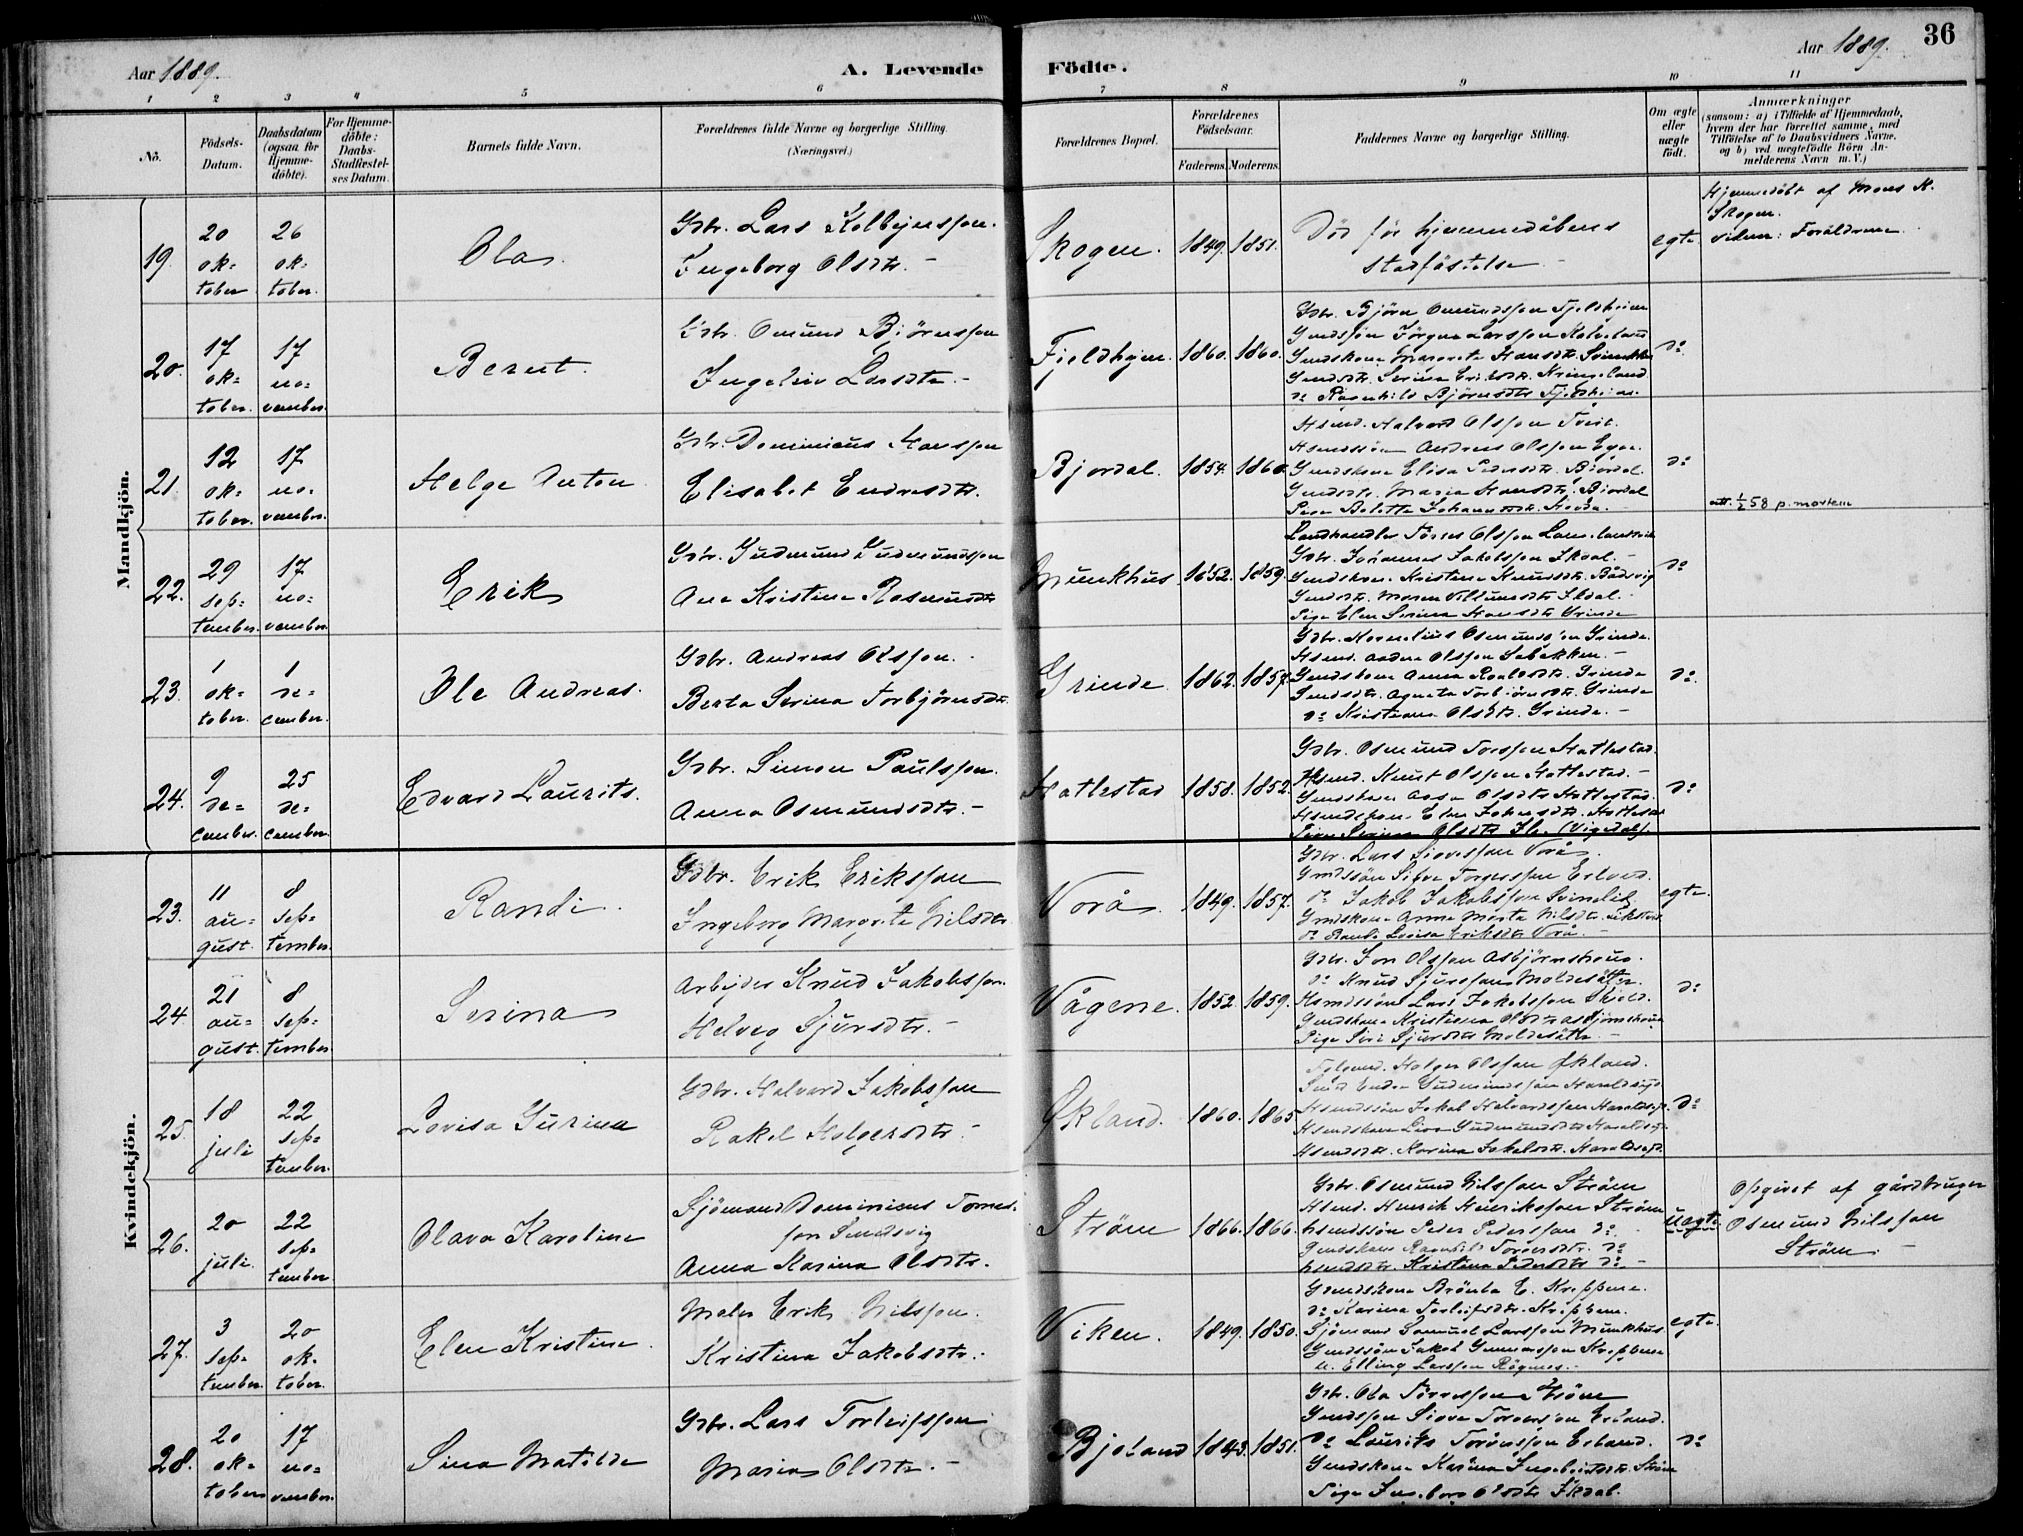 36
Aar 1889.
A. Levende Födte.
Aar 1889.
1 2 3 4 5 6 7 8 9 10 11
No.
Födsels-Datum.
Daabsdatum (ogsaa for Hjemme-döbte).
For Hjemme-döbte: Daabs-Stadfæstel-ses Datum.
Barnets fulde Navn.
Forældrenes fulde Navne og borgerlige Stilling. (Næringsvei.)
Forældrenes Bopæl.
Forældrenes Födselsaar.
Faderens. Moderens.
Faddernes Navne og borgerlige Stilling.
Om ægte eller uægte födt.
Anmærkninger
(saasom: a) i Tilfælde af Hjemmedaab,
hvem der har forrettet samme, med
Tilföielse af to Daabsvidners Navne,
og b) ved uægtefödte Börn An-
melderens Navn m. V.)
Mandkjön.
19.
20 ok= tober
26 ok= tober.
Ola.
Gbr. Lars Kolbejnsson.
Ingeborg Olsdtr. -
Skogen.
1849. 1851.
Död för hjemmedåbens
stadfästelse -
egte
Hjemmedöbt af Mons K.
Skogen.
vidner: Foräldrene
20.
17 ok= tober.
17 no= vember.
Berut.
Gbr. Omund Björnsson
Ingeleiv Larsdtr. -
Fjeldhejm.
1860. 1860.
Gbr. Björn Omundsson Fjeldheim
Gmdssön Jörgen Larsson
Gmdskone Margreta Hansdtr.
Gmdsdtr. Serina Eriksdtr.
do Ragnhild Björnsdtr Fjeldheim.
do
21.
12 ok= tober.
17 no= vember.
Helge Anton
Gbr. Dominicus Hansson
Elisabet Endresdtr.
Bjordal.
1854. 1860.
Hsmd. Halvard Olsson Tveit.
Hsmdssön Andreas Olsson
Gmdskone Elisa Pedersdtr. Bjordal
Gmdsdtr. Maria Hansdtr. Bjordal
Pige Bolette Johannesdtr.
do
att. 1/2 58 p. mortem
22.
29 sep= tember.
17 no= vember.
Erik
Gbr. Gudmund Gudmundsson
Ane Kristine Rasmusdtr
Munkhus
1852. 1859.
Landhandler Torres Olsson
Gbr. Johannes Jakobsson Ikdal. -
Gmdskone Kristine Knudsdtr. Bådsvig
Gmdsdtr. Maren Villumsdtr Ikdal.
Pige Elen Serina Hansdtr Grinde
do
23.
1 ok= tober.
1 de= cember.
Ole Andreas.
Gbr. Andreas Olsson.
Berta Serina Torbjörnsdtr.
Grinde
1862. 1857.
Gbr. Kornelius Osmundsson Grinde.
Hsmd. Andre Olsson -
Gmdskone Anna Roaldsdtr. Grinde
Gmdsdtr. Agneta Torbjörnsdtr. Grinde
do Kristiane Olsdtr. Grinde. -
do
24.
9 de= cember.
25 de= cember.
Edvard Laurits.
Gbr. Simon Paulsson.
Anna Osmundsdtr. -
Hattestad
1858. 1852.
Gbr. Osmund Torsson Hattestad.
Hsmd. Knut Olsson Hattestad. -
Gmdskone Olsdtr Hattestad.
Hsmdskone Elen Hattestad
Pige Serina Olsdtr
do
Kvindekjön.
23.
11 au= gust.
8 sep= tember.
Randi.
Gbr. Erik Eriksson
Ingeborg Margrete Nilsdtr
Vorå.
1849. 1857.
Gbr. Lars Siversson Vorå.
Gmdssön Sjove Torgersson Erland.
do Jakob Jakobsson Svinali
Gmdskone Anna Marta Nilsdtr.
do Randi Lovisa Eriksdtr Vorå. -
egte.
24.
21 au= gust.
8 sep= tember
Serina
Arbejder Knud Jakobsson.
Helveg Sjursdtr. -
Vågene.
1852. 1859.
Gbr. Jon Olsson Asbjörnshous.
do Knud Sjursson Moldesäter.
Hsmdssön Lars Jakobsson Skjold.
Gmdskone Kristiena Olsdtr Asbjörnshous
Pige Siri Sjursdtr Moldesäter -
do
25.
18 juli
22 sep= tember.
Lovisa Gurina
Gbr. Halvard Jakobsson
Rakel Holgersdtr. -
Økland.
1860. 1865
Holger Olsson Økland.
Endre Gudmundsson
Hsmdssön Jakob Halvardsson
Hsmdskone Gudmundsdtr
Hsmdsdtr. Karina Jakobsdtr.
do
26.
20 juli.
22 sep= tember
Olava Karoline
Sjömand Dominicus Torres=
son Sundsvig
Anna Karina Olsdtr.
Strøm
1866. 1866.
Gbr. Osmund Nilsson Strøm
Hsmd. Henrik Henriksson Strøm
Hsmdssön Peder Pedersson do
Gmdskone Ragnhild Torgersdtr. do
Hsmdsdtr. Kristina Pedersdtr do -
uegte
Opgivet af gårdbruger
Osmund Nilsson
Strøm. -
27.
3 sep= tember.
20 ok= tober.
Elen Kristine.
Maler Erik Nilsson.
Kristina Jakobsdtr. -
Viken.
1849. 1850.
Gmdskone Brönla E. Kreppene.
do Karina Torleifsdtr. Kreppene.
Sjömand Samuel Larsson Munkhus
Gmdssön Jakob Gunnarsson Kreppene
u. Elling Larsson Rögenes. -
egte.
28.
20 ok= tober
17 no= vember.
Sina Matilde
Gbr. Lars Torleifsson
Maria Olsdtr. -
Bjoland
1843. 1851.
Gbr. Ola Torresson Strøm
Gmdssön Sjove Torgersson Erland.
do Laurits Torgersson Erland.
Gmdskone Karina Ingebretsdtr. Strøm
Pige Ingeborg Olsdtr Ikdal.
do